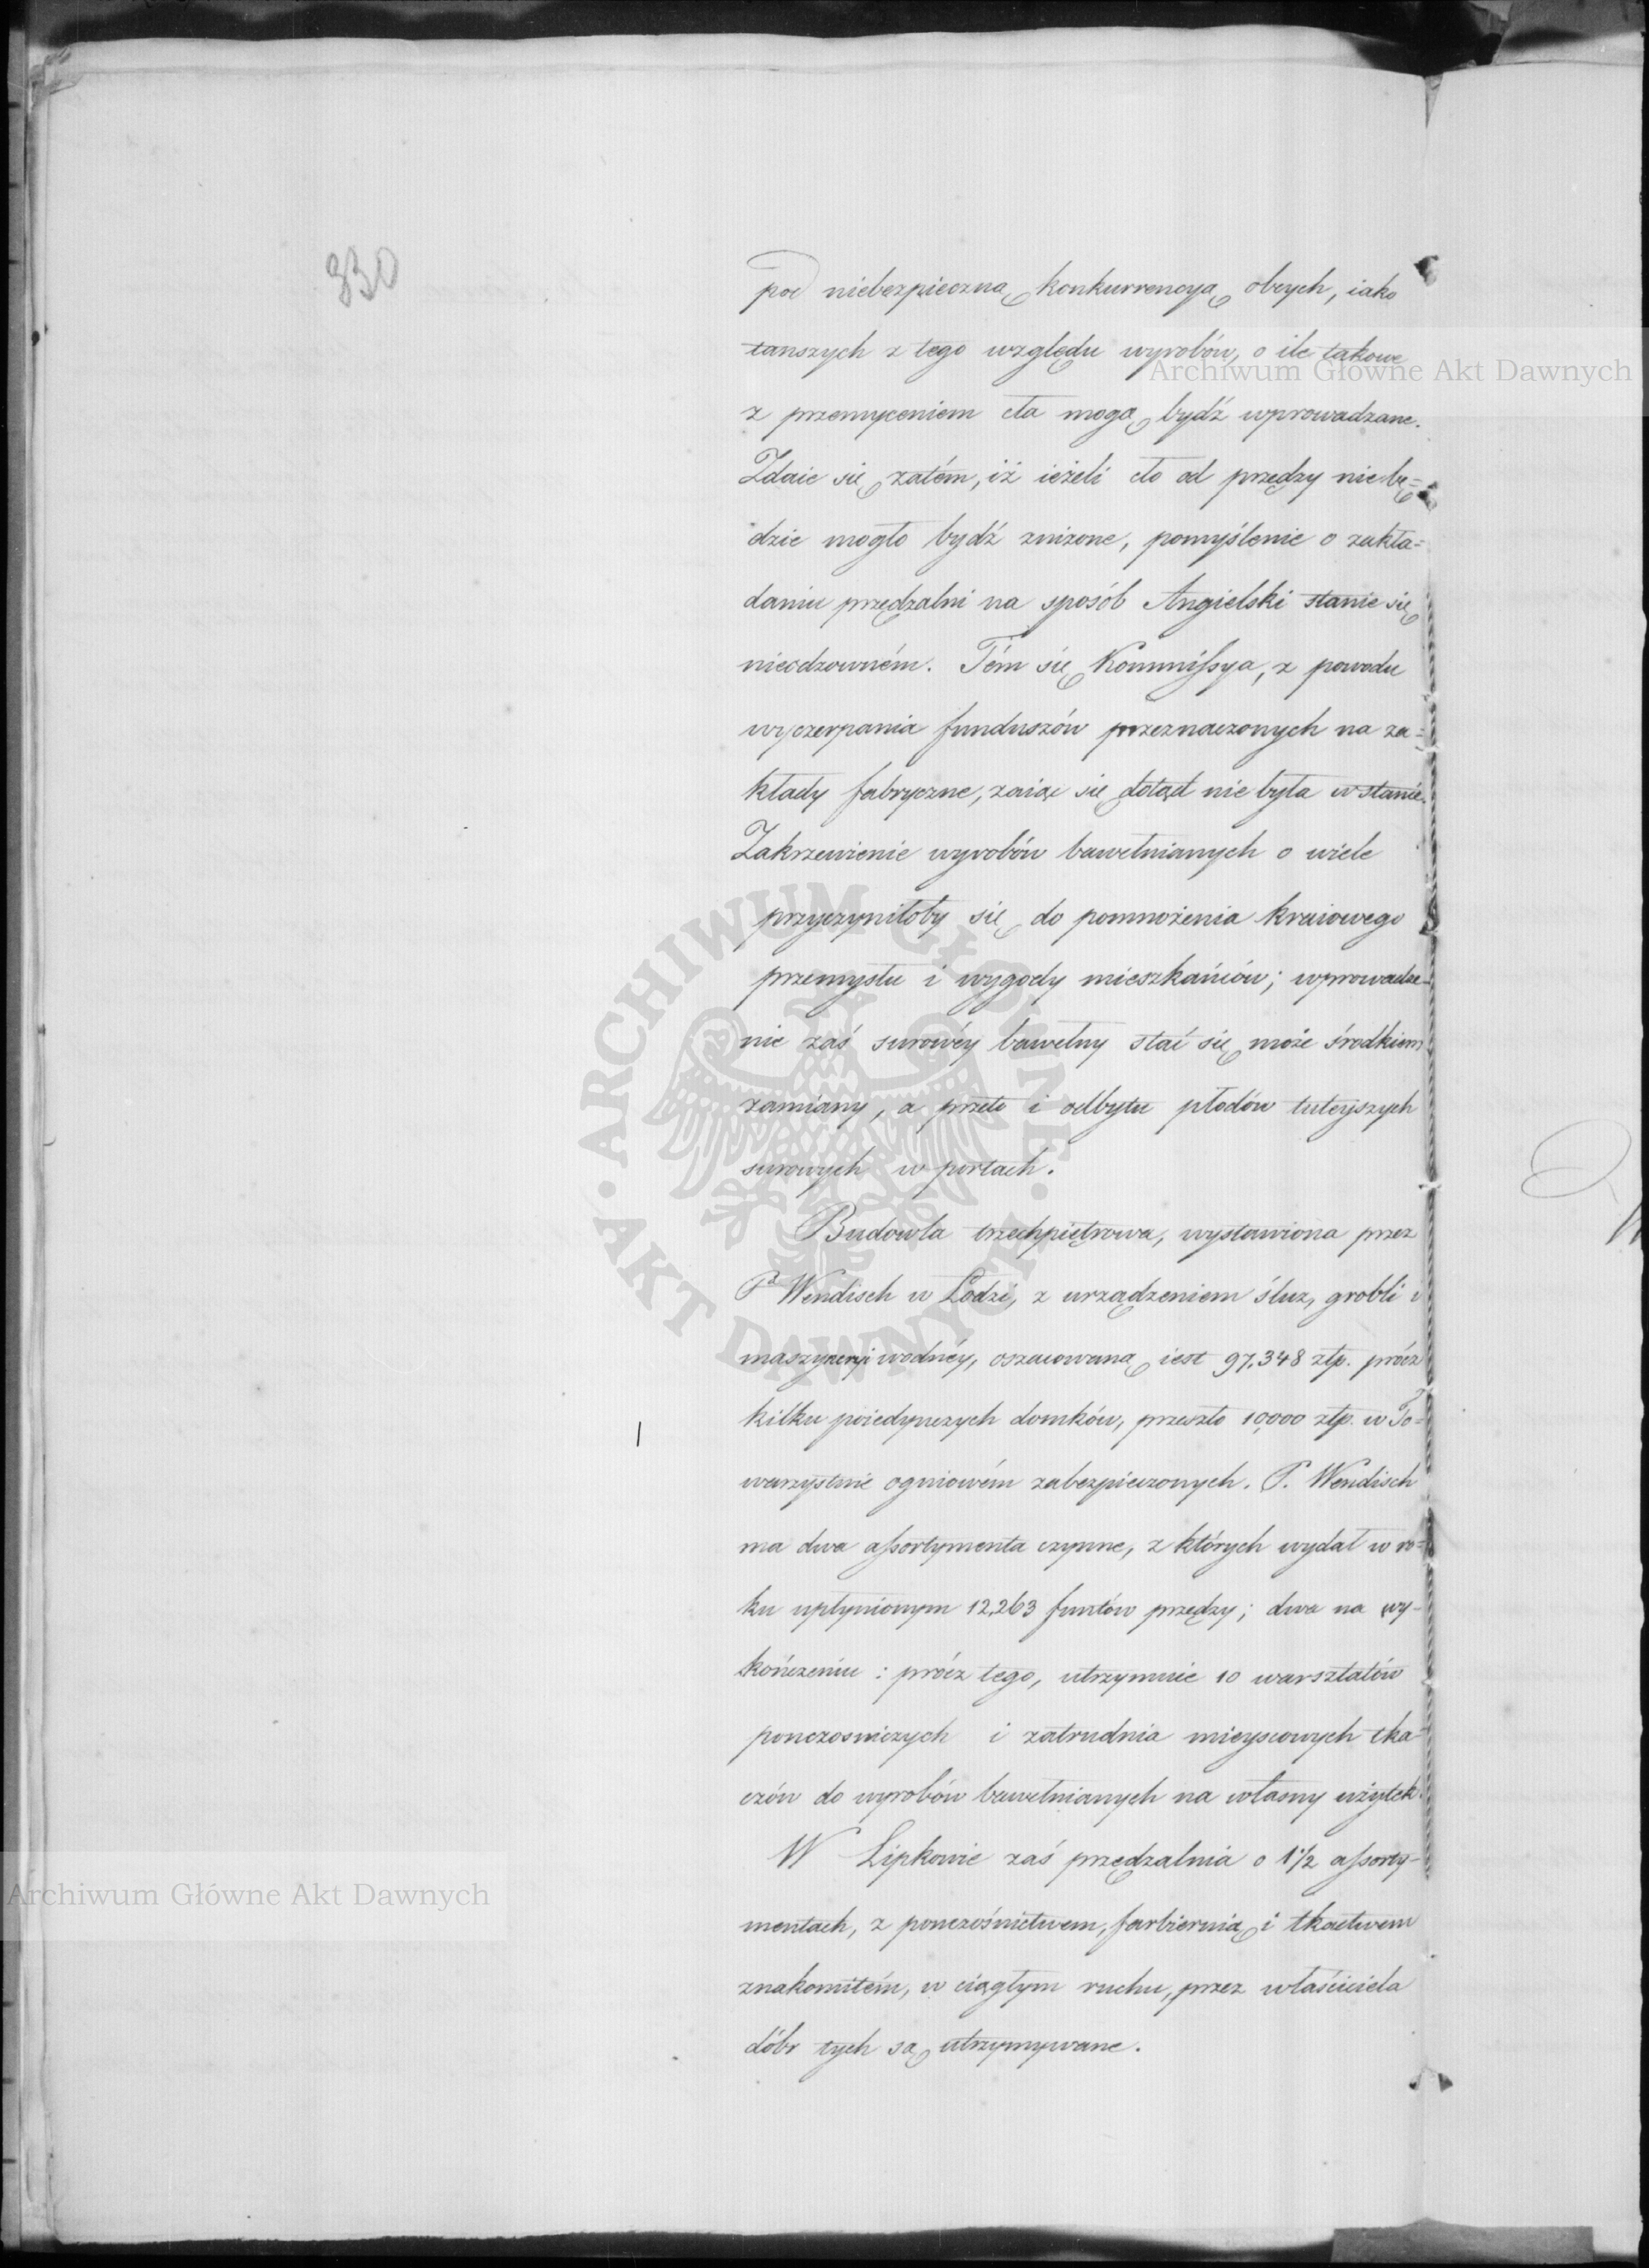 330
pod niebezpieczną konkurrencyą obcych, iako
tanszych z tego względu wyrobów, o ile takowe
z przemyceniem cła mogą bydź wprowadzane.
Zdaie się zatém, iż ieżeli cło od przędzy nie bę=
dzie mogło bydź zniżone, pomyślenie o zakła=
daniu przędzalni na sposób Angielski stanie się
nieodzowném. Tém się Kommissya, z powodu
wyczerpania funduszów przeznaczonych na za=
kłady fabryczne, zaiąć się dotąd nie była w stanie.
Zakrzewienie wyrobów bawełnianych o wiele
przyczyniłoby się do pomnożenia kraiowego
przemysłu i wygody mieszkańców; wprowadze-
nie zaś surowéy bawełny stać się może środkiem
zamiany, a przeto i odbytu płodów tuteyszych
surowych w portach.
Budowla trzechpiętrowa, wystawiona przez
Pa Wendisch w Łodzi, z urządzeniem śluz, grobli i
maszyneryi wodnéy, oszacowaną iest 97,348 złp. prócz
kilku poiedynczych domków, przeszło 10,000 złp. w To=
warzystwie ogniowém zabezpieczonych. P. Wendisch
ma dwa assortymenta czynne, z których wydał w ro=
ku upłynionym 12,263 funtów przędzy; dwa na wy-
kończeniu: prócz tego, utrzymuie 10 warsztatów
ponczoszniczych i zatrudnia mieyscowych tka-
czów do wyrobów bawełnianych na własny użytek.
W Lipkowie zaś przędzalnia o 1 1/2 assorty-
mentach, z ponczośnictwem, farbiernią i tkactwem
znakomitém, w ciągłym ruchu, przez właściciela
dóbr tych są utrzymywane.
Archiwum Główne Akt Dawnych
ARCHIWUM GŁÓWNE AKT DAWNYCH
Archiwum Główne Akt Dawnych